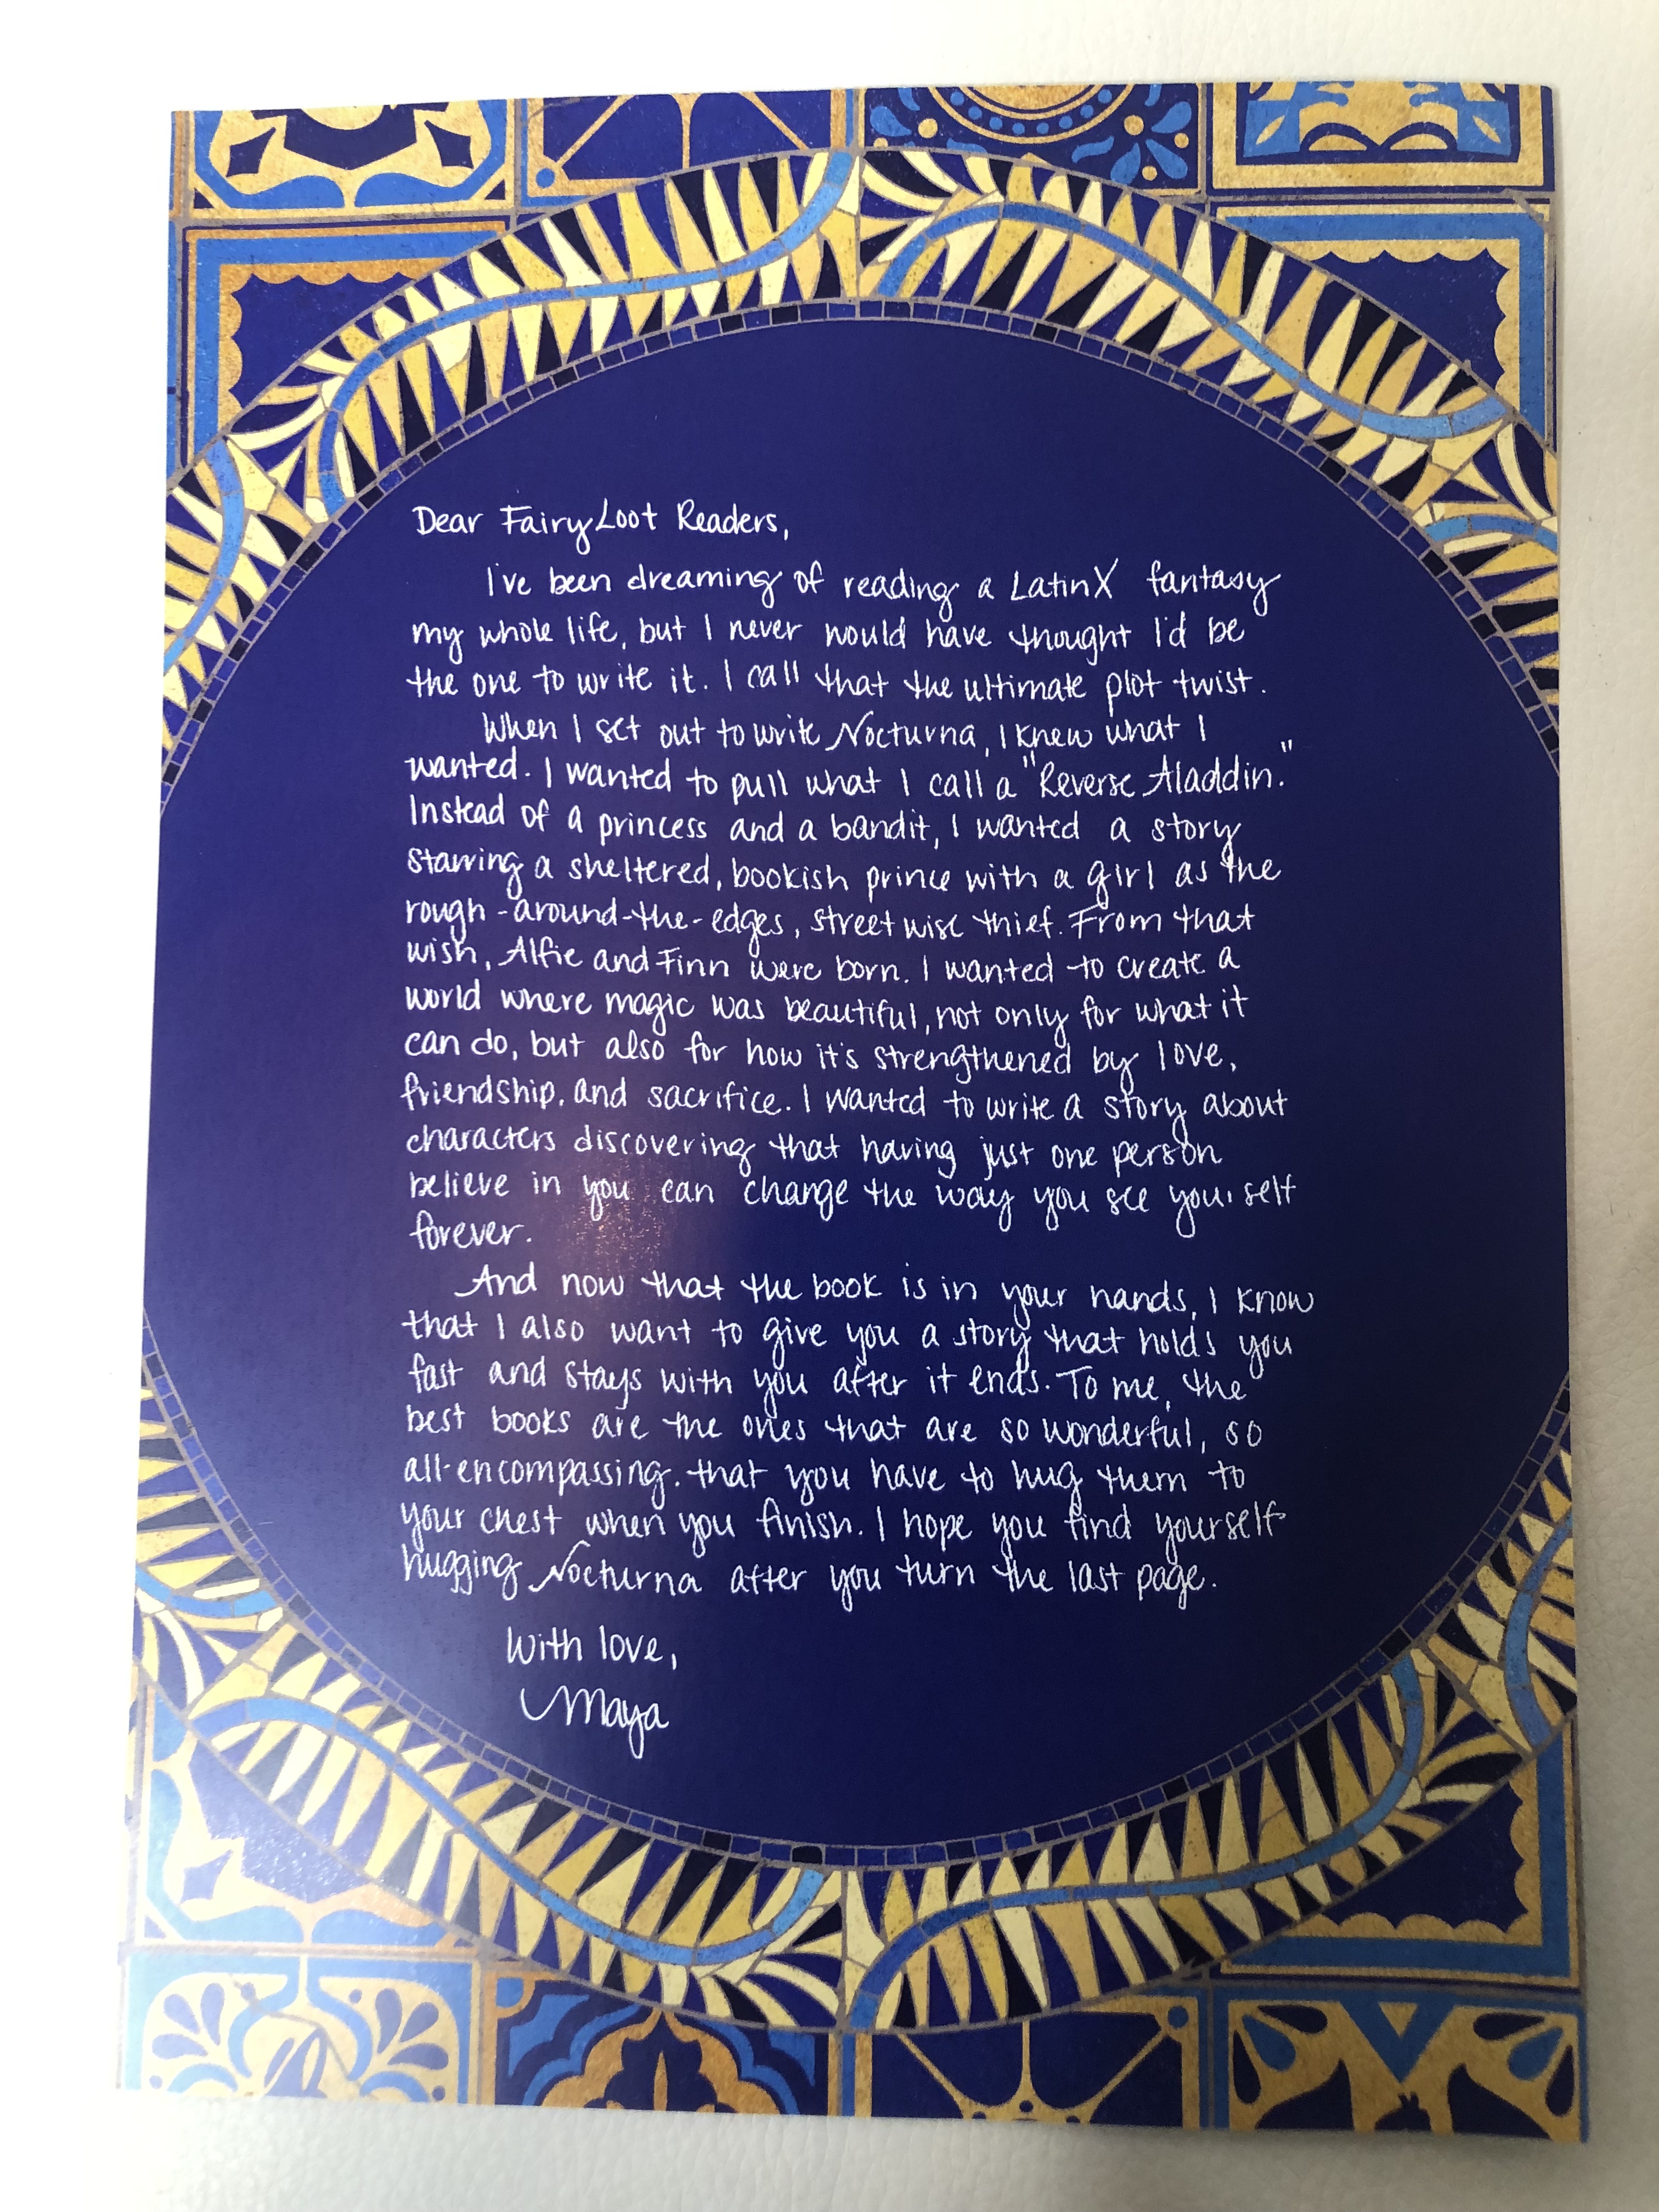 Dear FairyLoot Readers,
I've been dreaming of reading a LatinX fantasy
my whole life, but I never would have thought I'd be
the one to write it. I call that the ultimate plot twist.
When I set out to write Nocturna, I knew what I
wanted. I wanted to pull what I call a "Reverse Aladdin."
Instead of a princess and a bandit, I wanted a story
starring a sheltered, bookish prince with a girl as the
rough-around-the-edges, streetwise thief. From that
wish, Alfie and Finn were born. I wanted to create a
world where magic was beautiful, not only for what it
can do, but also for how it's strengthened by love,
friendship, and sacrifice. I wanted to write a story about
characters discovering that having just one person
believe in you can change the way you see yourself
forever.
And now that the book is in your hands, I know
that I also want to give you a story that holds you
fast and stays with you after it ends. To me, the
best books are the ones that are so wonderful, so
all-encompassing, that you have to hug them to
your chest when you finish. I hope you find yourself
hugging Nocturna after you turn the last page.
With love,
Maya